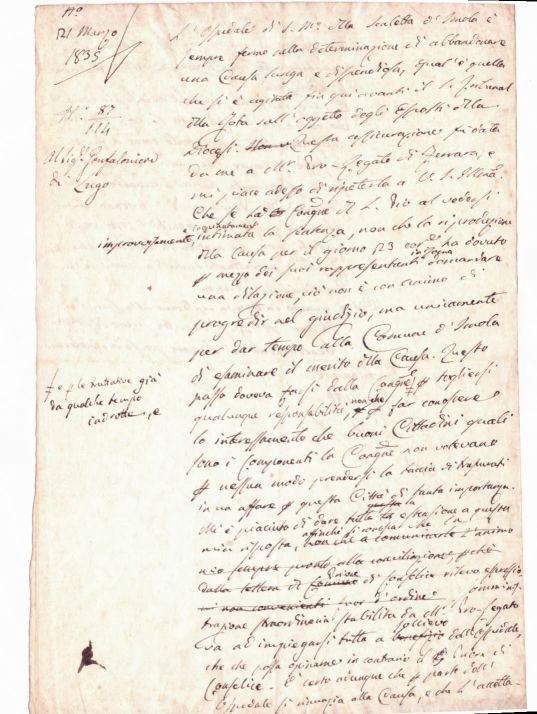 21 Marzo
1835
N.° 87
114
Al Sig.r Gonfaloniere
di Lugo
L'Ospedale di S. M.a della Scaletta d'Imola è
sempre fermo nella determinazione di abbandonare
una Causa lunga e dispendiosa, qual'è quella
che si è agitata fin qui avanti il S. Tribunal
della Rota sull'oggetto degli Esposti della
Diocesi. Questa assicurazione fu data
da me a M.r Pro-Legato di Ferrara, e
mi piace adesso di ripeterla a V. S. Ill.ma
Che se la Congne
improvvisamente, intimata la sentenza, non che la riproduzione
della Causa per il giorno 23 corr.e ha dovuto
p mezzo dei suoi rappresentanti in Roma domandare
una dilazione, ciò non è con animo di
progredir nel giudizio, ma unicamente
per dar tempo alla Comune d'Imola
di esaminare il merito della Causa. Questo
passo doveva farsi dalla Congne p togliersi
qualunque responsabilità, non che p far conoscere
lo interessamento che buoni Cittadini quali
sono i Componenti la Congne non volevano
p nessun modo prendersi la taccia di trascurati
in un affare p questa Città di tanta importanza.
e p le trattative già
da qualche tempo
introdotte, e
Mi è piaciuto di dare tutta la estensione a questa
mia risposta, affinchè si conosca che
non che a comunicarle l'animo
mio sempre pronto alla conciliazione, perchè
dalla lettera di di Conselice rilevo espressio-
ni non convenienti
trazione straordinaria stabilita da M.r Pro-Legato
sia ad impiegarsi tutta a sollievo dell'Ospedale,
che che possa opinare in contrario il
Conselice. È certo adunque che p parte dell'
Ospedale si rinunzia alla Causa, e che l'accetta-